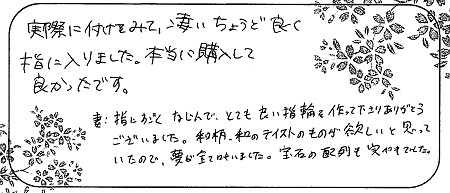 実際に付けてみて、凄いちょうど良く
指に入りました。本当に購入して
良かったです。
妻:指にすごくなじんで、とても良い指輪を作って下さりありがとう
ございました。和柄、和のテイストのものが欲しいと思って
いたので、夢が全て叶いました。宝石の配列も